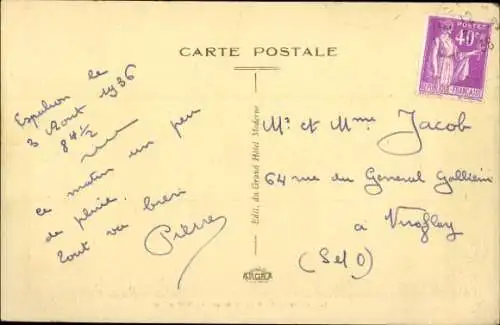 CARTE POSTALE
POSTES
40c
REPUBLIQUE FRANÇAISE
Espalion le
3 Août 1936
8h 1/2
ce matin un peu
de pluie.
Tout va bien
Pierre
Edit. du Grand Hôtel Moderne
Mr et Mme Jacob
64 rue du General Gallieni
a Viroflay
(S et O)